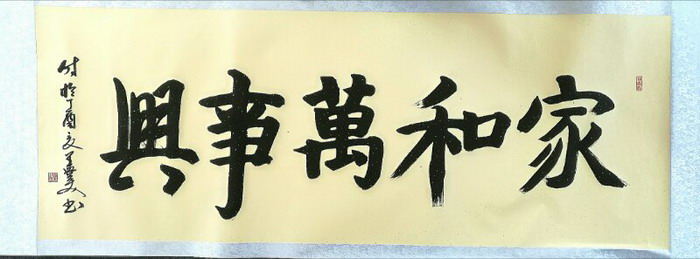 家和萬事興
時於丁酉夏
書